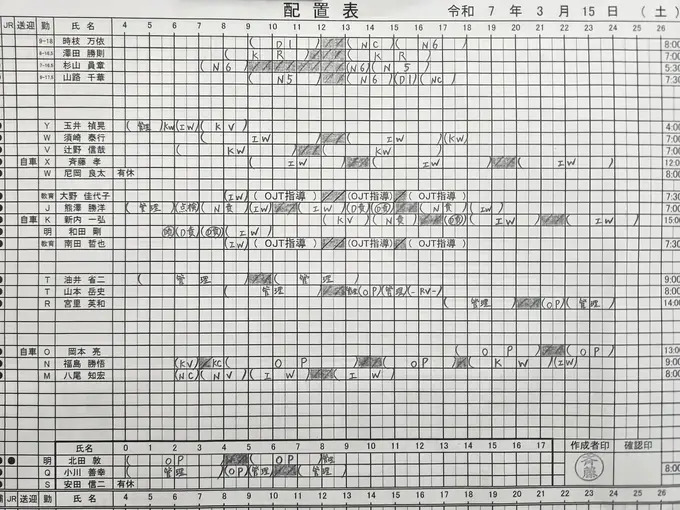 配置表 令和 7 年 3 月 15 日 (土)
JR 送迎 勤 氏名 4 5 6 7 8 9 10 11 12 13 14 15 16 17 18 19 20 21 22 23 24 25 26
9-18 時枝 万依 (D1) (NC) (N6) 8:00
澤田 勝則 (KR) (KR) 7:00
杉山 眞章 (N6) (N6) (N5) 5:30
山路 千華 (N5) (N6) (D1) (NC) 7:30
Y 玉井 禎晃 (管理) (KW) (IW) (KV) 4:00
W 須崎 泰行 (IW) (IW) (KW) 8:00
V 辻野 信哉 (KW) (KW) 8:00
自車 X 斉藤 孝 (IW) (IW) (IW) 12:0
W 尼岡 良太 有休 8:00
教育 大野 佳代子 (IW) (OJT指導) (OJT指導) (OJT指導) 7:30
J 熊澤 勝洋 (管理) (点検) (N責) (IW) (IW) (D責) (N責) (IW) 7:00
自車 K 新内 一弘 (KV) (N責) (IW) (IW) 15:00
明 和田 剛 (D責) (IW)
教育 南田 哲也 (IW) (OJT指導) (OJT指導) (OJT指導) 7:30
T 油井 省二 (管理) (管理) 9:00
T 山本 岳史 (管理) 管理 (OP) (管理) (-RV-) 8:00
R 宮里 英和 (管理) (OP) (管理) 14:00
自車 O 岡本 亮 (OP) (OP) 13:00
N 福島 勝悟 (KV) KC (OP) (OP) (KW) (IW) 9:00
M 八尾 知宏 (NC) (NV) (IW) (IW) 8:00
氏名 0 1 2 3 4 5 6 7 8 9 10 11 12 13 14 15 16 17 作成者印 確認印
明 北田 敦 (OP) (OP) 管理
Q 小川 善幸 (管理) (OP) (管理) (管理) 8:00
斉藤
S 安田 信二 有休
JR 送迎 勤 氏名 4 5 6 7 8 9 10 11 12 13 14 15 16 17 18 19 20 21 22 23 24 25 26